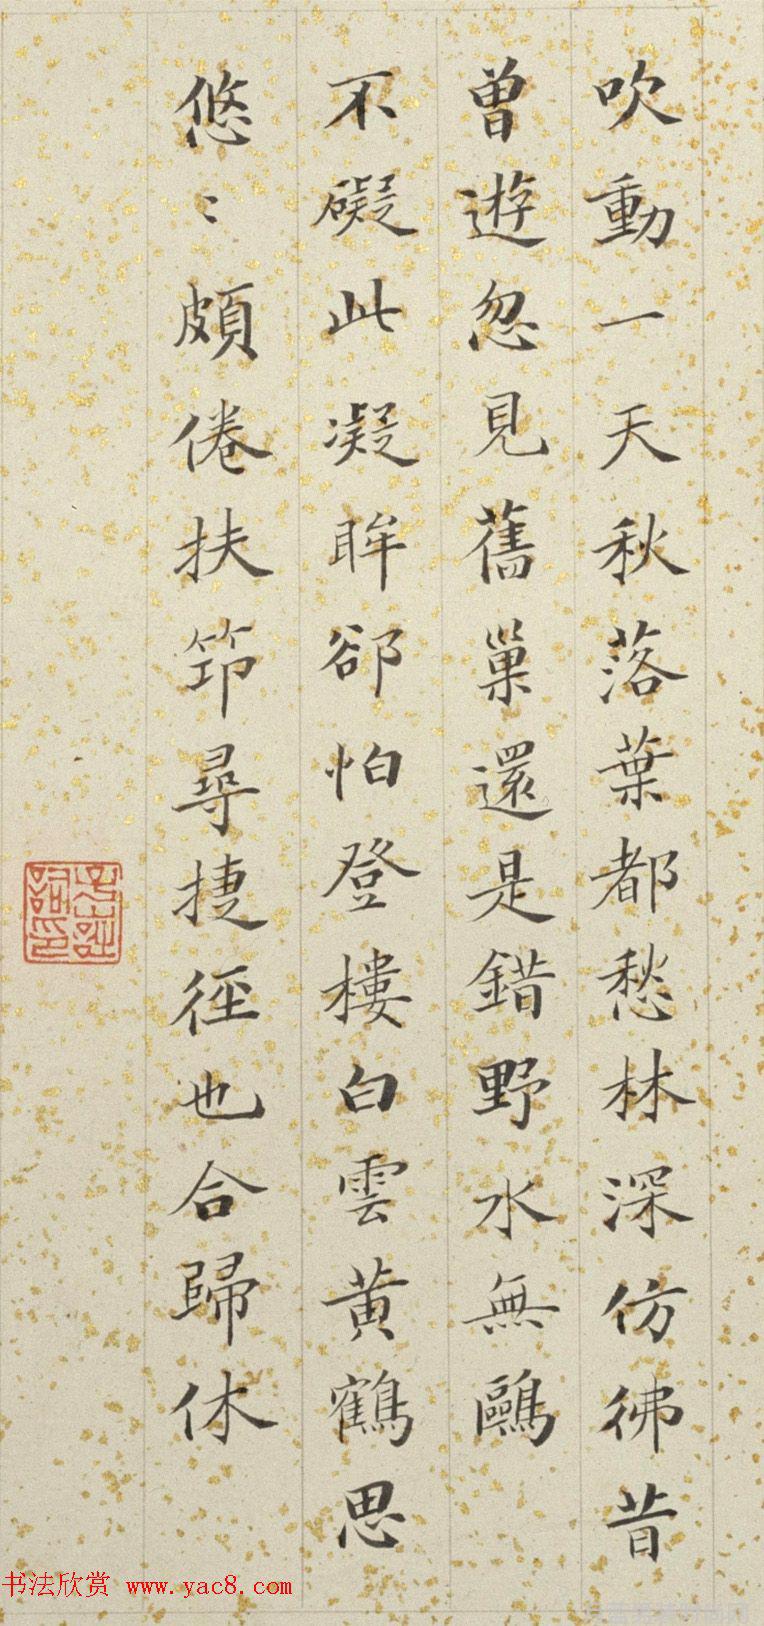 吹動一天秋落葉都愁林深仿彿昔
曾遊忽見舊巢還是錯野水無鷗
不礙此凝眸郤怕登樓白雲黃鶴思
悠〻頗倦扶筇尋捷徑也合歸休
书法欣赏 www.yac8.com